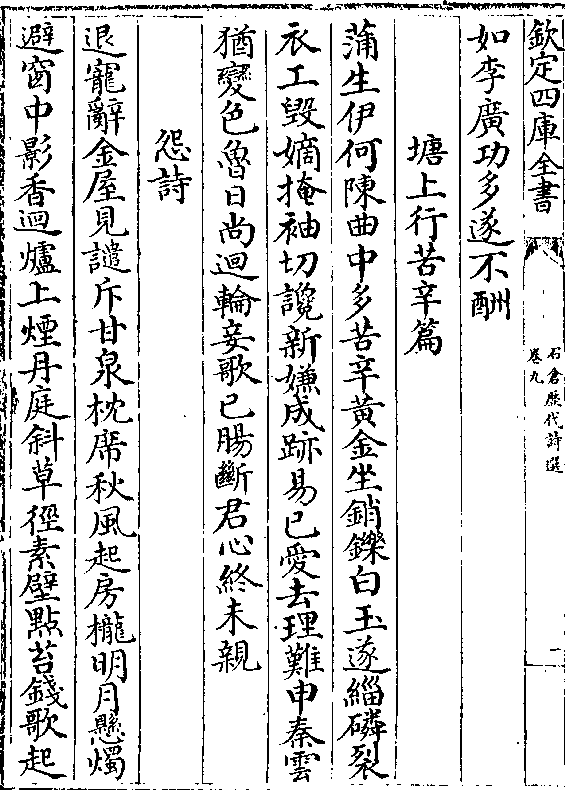 欽定四庫全書
石倉歷代詩選
卷九
二
如李廣功多遂不酬
塘上行苦辛篇
蒲生伊何陳曲中多苦辛黃金坐銷鑠白玉遂緇磷裂
衣工毀嫡掩袖切讒新嫌成跡易已愛去理難申秦雲
猶變色魯日尚迴輪妾歌已腸斷君心終未親
怨詩
退寵辭金屋見譴斥甘泉枕席秋風起房櫳明月懸燭
避窗中影香迴爐上煙丹庭斜草徑素壁點苔錢歌起